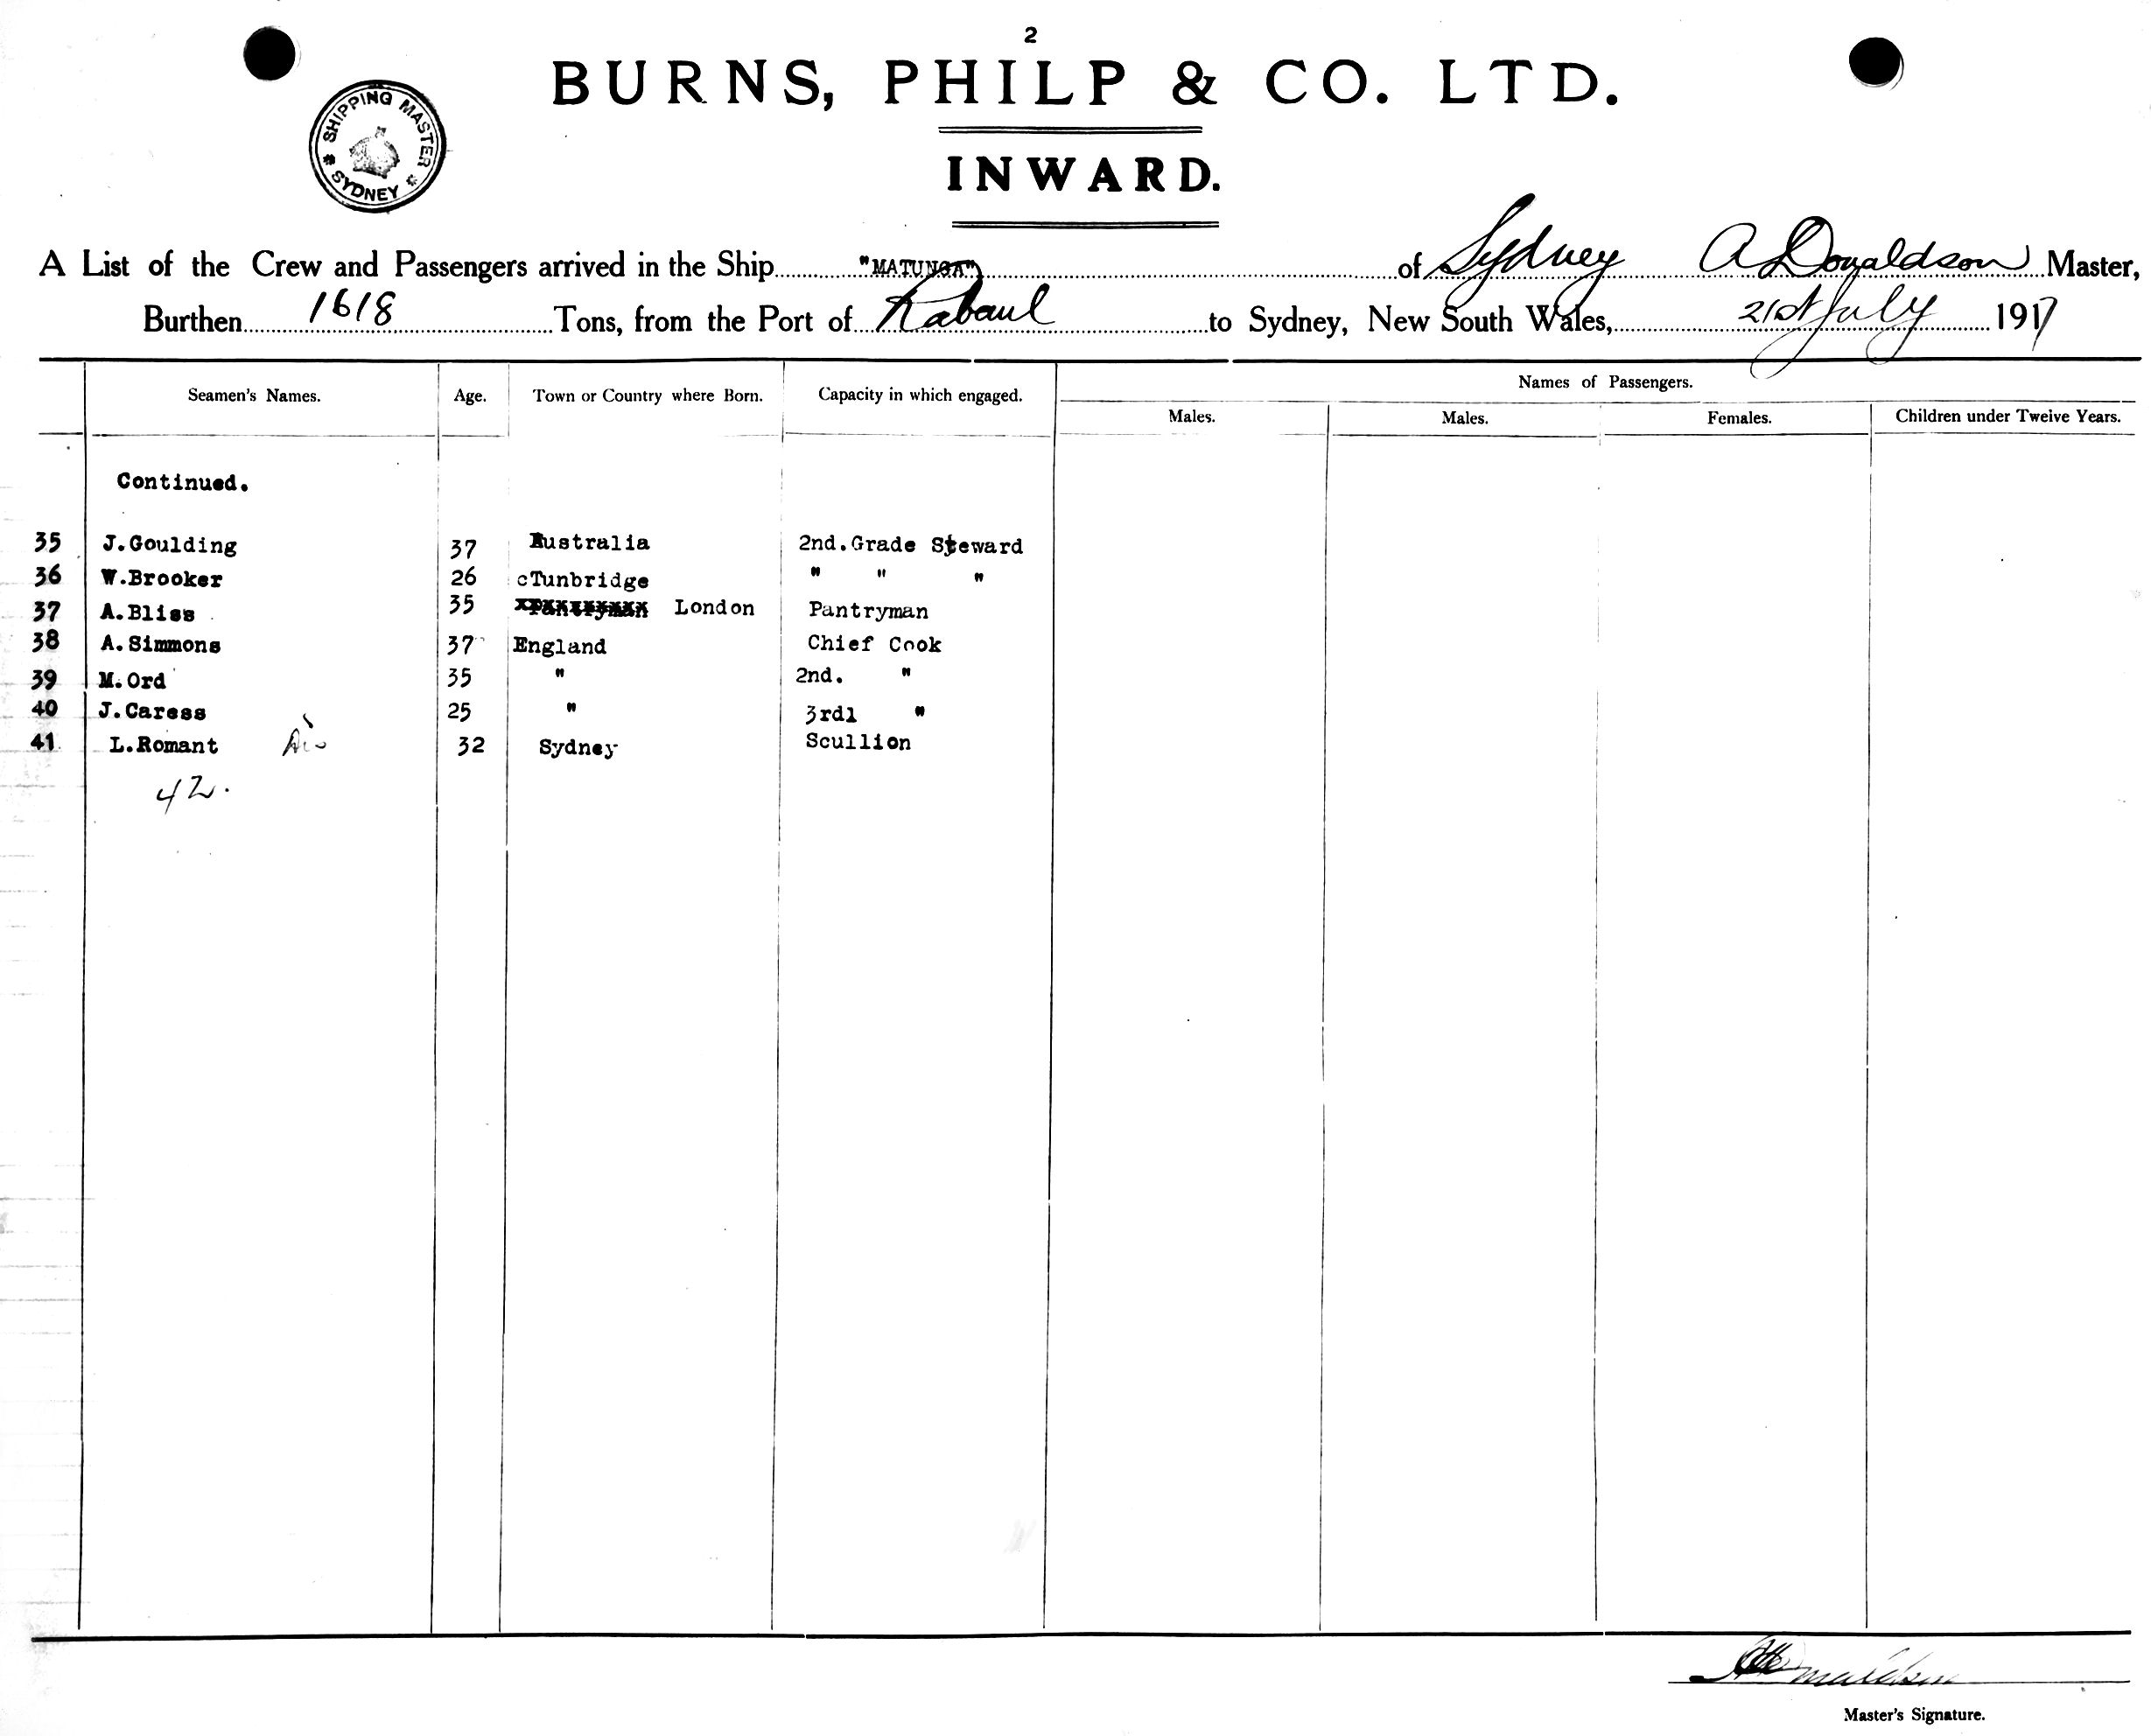 2
BURNS, PHILP & CO. LTD.
SHIPPING MASTER
SYDNEY
INWARD.
A List of the Crew and Passengers arrived in the Ship "MATUNGA" of Sydney A Donaldson Master,
Burthen 1618 Tons, from the Port of Rabaul to Sydney, New South Wales, 21st July 1917
Names of Passengers.
Seamen's Names. Age. Town or Country where Born. Capacity in which engaged. Males. Males. Females. Children under Twelve Years.
Continued.
35 J.Goulding 37 Australia 2nd.Grade Steward
36 W.Brooker 26 cTunbridge " " "
37 A.Bliss 35 London Pantryman
38 A.Simmons 37 England Chief Cook
39 M.Ord 35 " 2nd. "
40 J.Caress 25 " 3rdl "
41 L.Romant 32 Sydney Scullion
42.
Master's Signature.